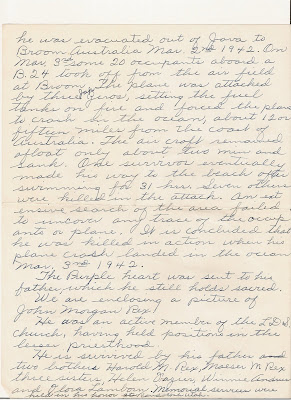 he was evacuated out of Java to
Broom Australia Mar. 2nd 1942. On
Mar. 3rd some 20 occupants aboard a
B.24 took off from the air field
at Broom. The plane was attacked
by three Jap Zeros, setting the fuel
tanks a fire and forced the plane
to crash in the ocean, about 12 or
fifteen miles from the coast of
Australia. The air craft remained
afloat only about two min and
sank. One survivor eventually
made his way to the beach after
swimming for 31 hrs. Seven others
were killed in the attack. An ext
ensive search of the area failed
to uncover any trace of the occup
ants or plane. It is concluded that
he was killed in action when his
plane crash landed in the ocean
Mar. 3rd 1942.
The Purple heart was sent to his
father, which he still holds sacred.
We are enclosing a picture of
John Morgan Rex.
He was an active membre of the L.D.S.
church, having held positions in the
lesser priesthood.
He is survived by his father and
two brothers Harold M. Rex, Maeser M. Rex
three sisters, Helen Frazier, Winnie
and Flora Lamborn. Memorial services were
held in his honor at Randolph Utah.